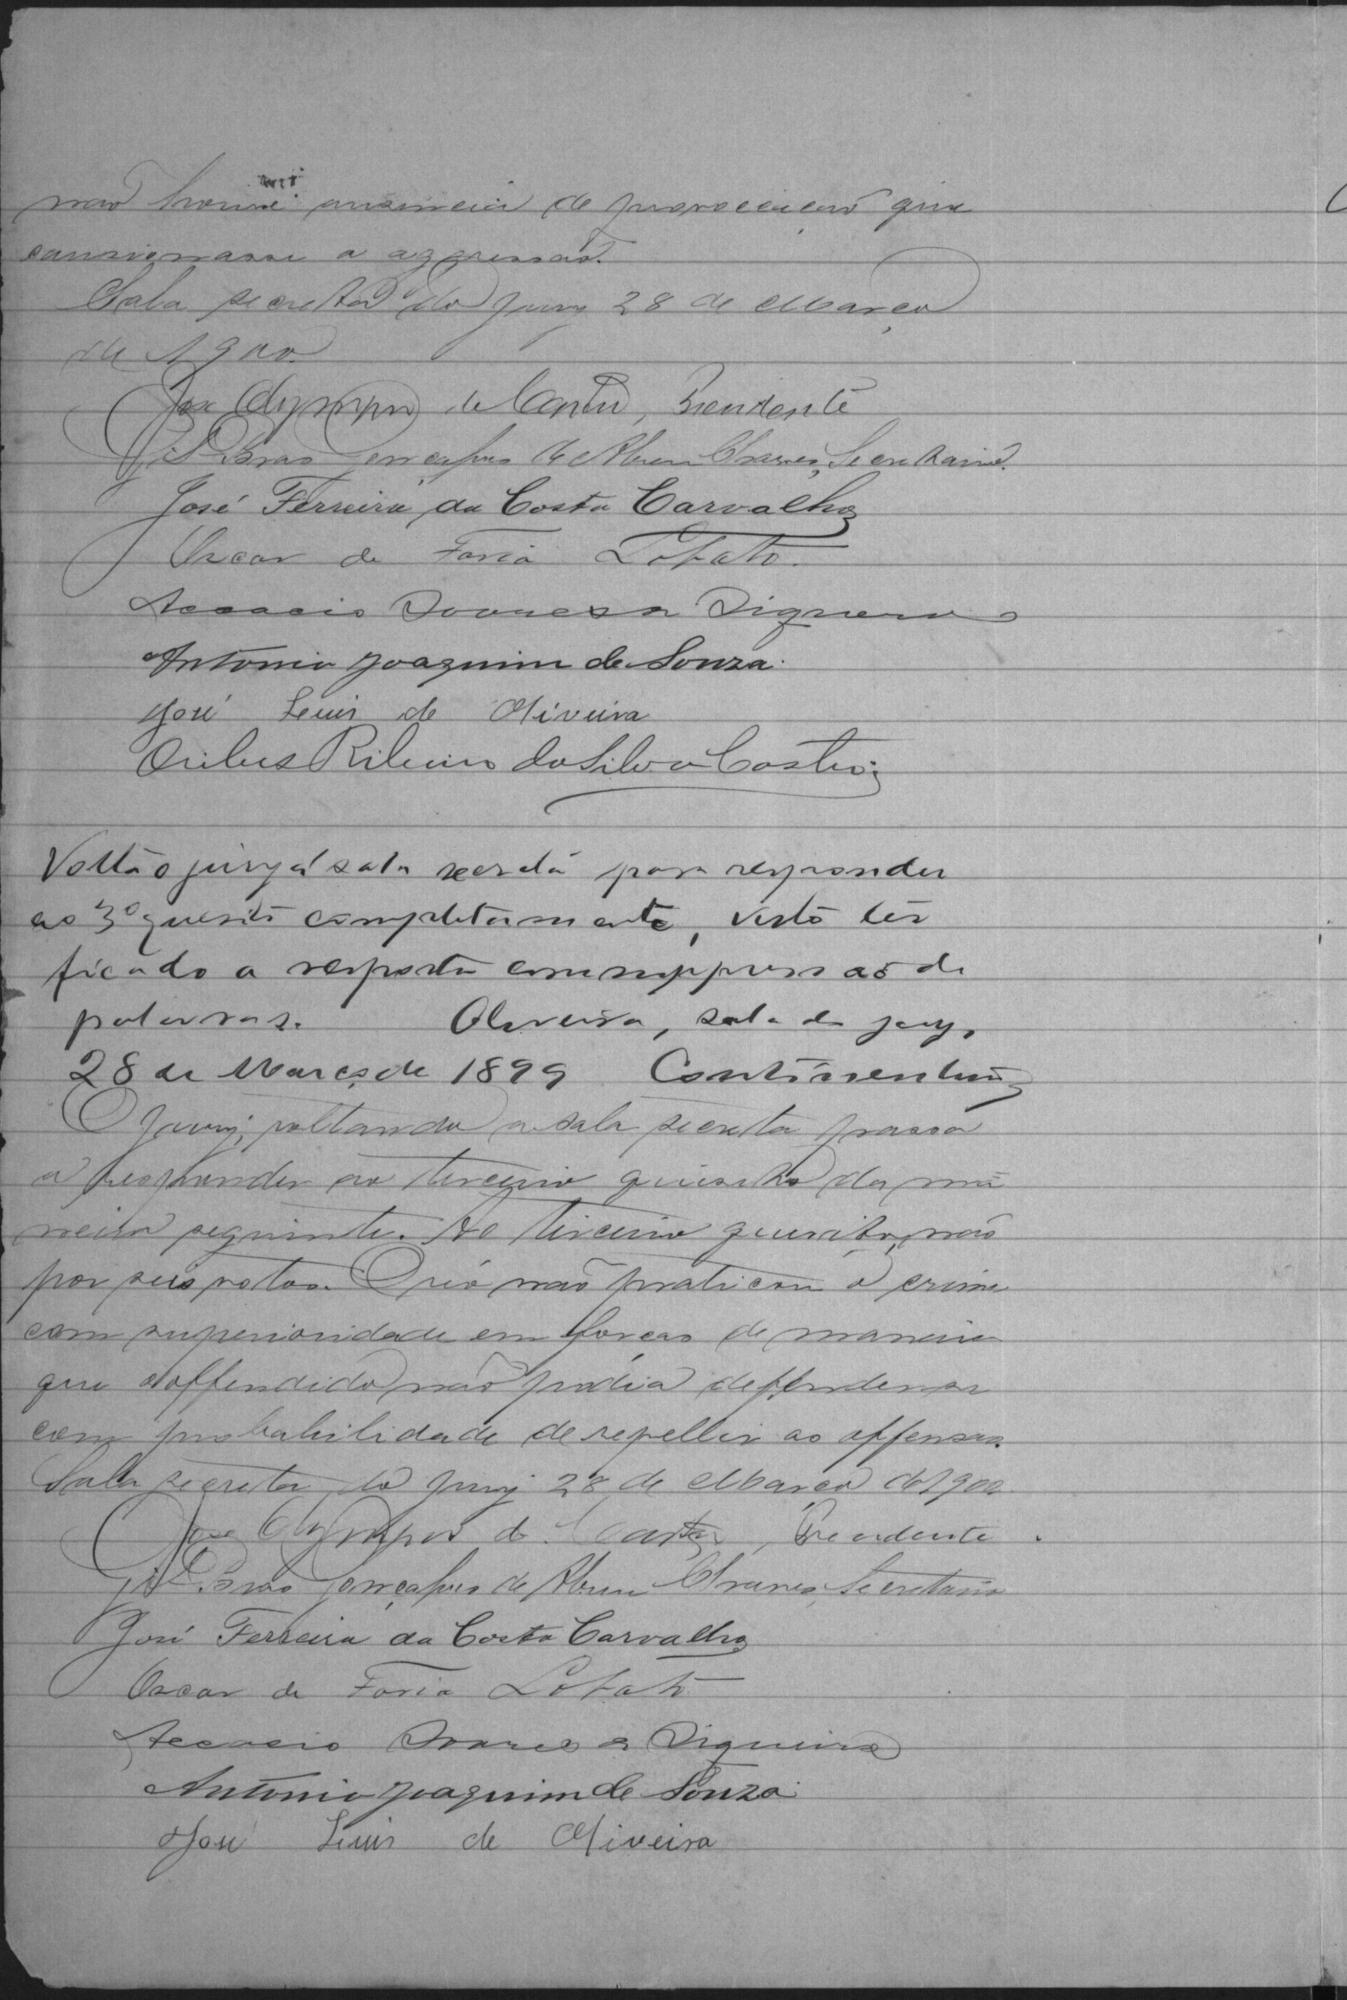 não houve ausencia de provocação que
occasionasse a aggressão.
Sala secreta do jury 28 de Março
de 1900.
José Olympio de Castro, Presidente
Gil Braz Gonçalves de Abreu Chaves, Secretario.
José Ferreira da Costa Carvalho
Oscar de Faria Lobato.
Accacio Soares Siqueira
Antonio Joaquim de Souza.
José Luis de Oliveira
Ribeiro da Silva Castro
Volta o jury á sala secreta para responder
ao 3º quesito completamente, visto ter
ficado a resposta com suppressão de
palavras. Oliveira, sala do jury,
28 de Março de 1899
O jury, voltando a sala secreta passa
a responder ao terceiro quesito da ma
neira seguinte. Ao terceiro quesito, não
por seis votos. O réo não praticou o crime
com superioridade em forças de maneira
que o offendido não podia defender-se
com probabilidade de repellir as offensas.
Sala secreta do jury 28 de Março de 1900
José Olympio de Castro, Presidente.
Gil Braz Gonçalves de Abreu Chaves, Secretario
José Ferreira da Costa Carvalho
Oscar de Faria Lobato
Accacio Soares Siqueira
Antonio Joaquim de Souza.
José Luis de Oliveira